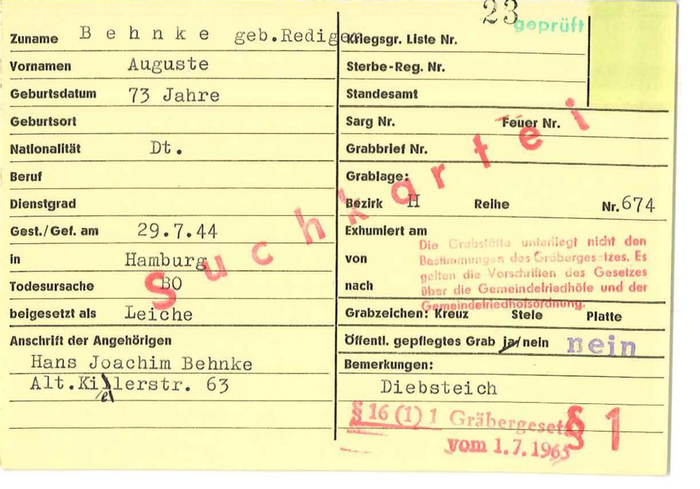 23
geprüft
Zuname Behnke geb.Redigen
Vornamen Auguste
Geburtsdatum 73 Jahre
Geburtsort
Nationalität Dt.
Beruf
Dienstgrad
Gest./Gef. am 29.7.44
in Hamburg
Todesursache BO
beigesetzt als Leiche
Anschrift der Angehörigen
Hans Joachim Behnke
Alt.Killerstr. 63
el
Kriegsgr. Liste Nr.
Sterbe-Reg. Nr.
Standesamt
Sarg Nr. Feuer Nr.
Grabbrief Nr.
Grablage:
Bezirk H Reihe Nr. 674
Exhumiert am
von
nach
Die Grabstätte unterliegt nicht den
Bestimmungen des Gräbergesetzes. Es
gelten die Vorschriften des Gesetzes
über die Gemeindefriedhöfe und der
Gemeindefriedhofsordnung.
Grabzeichen: Kreuz Stele Platte
Öffentl. gepflegtes Grab ja/nein nein
Bemerkungen:
Diebsteich
§ 16 (1) 1 Gräbergesetz
vom 1.7.1965
§ 1
Suchkartei